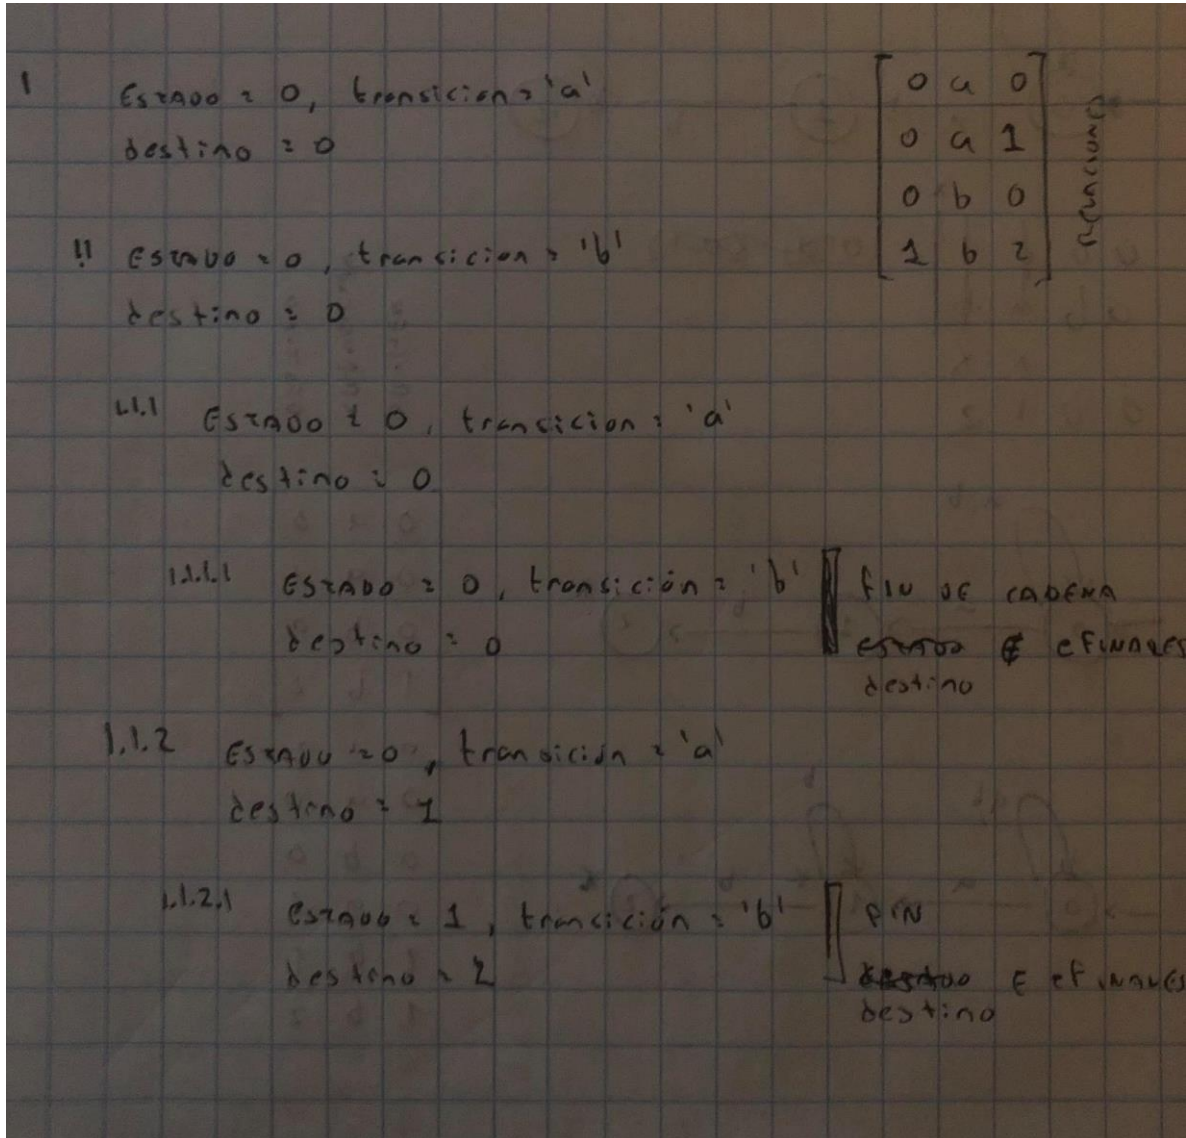 1 ESTADO = 0, transicion = 'a'
destino = 0
0 a 0
0 a 1
0 b 0
1 b 2
RELACIONES
1.1 ESTADO = 0, transicion = 'b'
destino = 0
1.1.1 ESTADO = 0, transicion = 'a'
destino = 0
1.1.1.1 ESTADO = 0, transición = 'b'
destino = 0
FIN DE CADENA
estado ∉ eFINALES
destino
1.1.2 ESTADO = 0, transición = 'a'
destino = 1
1.1.2.1 ESTADO = 1, transición = 'b'
destino = 2
FIN
∈ eFINALES
destino